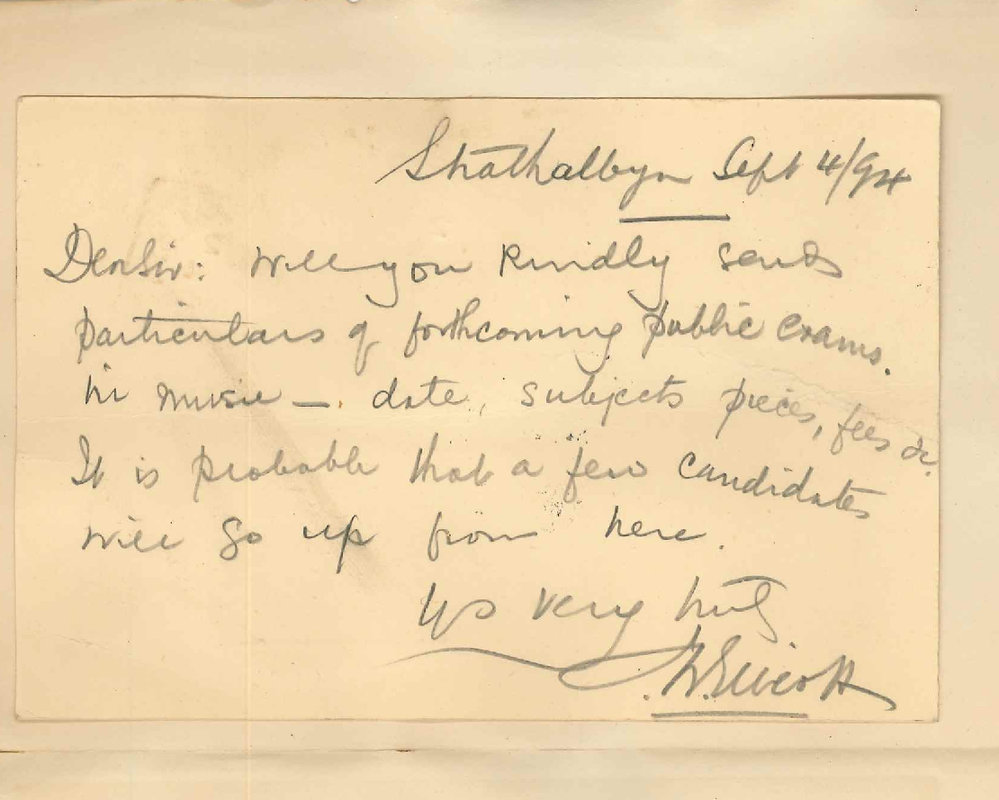 Strathalbyn Sept 4/94
Dear Sir: Will you kindly send
particulars of forthcoming public exams.
in music – date, subjects pieces, fees &c.
It is probable that a few candidates
will go up from here.
Yrs very truly